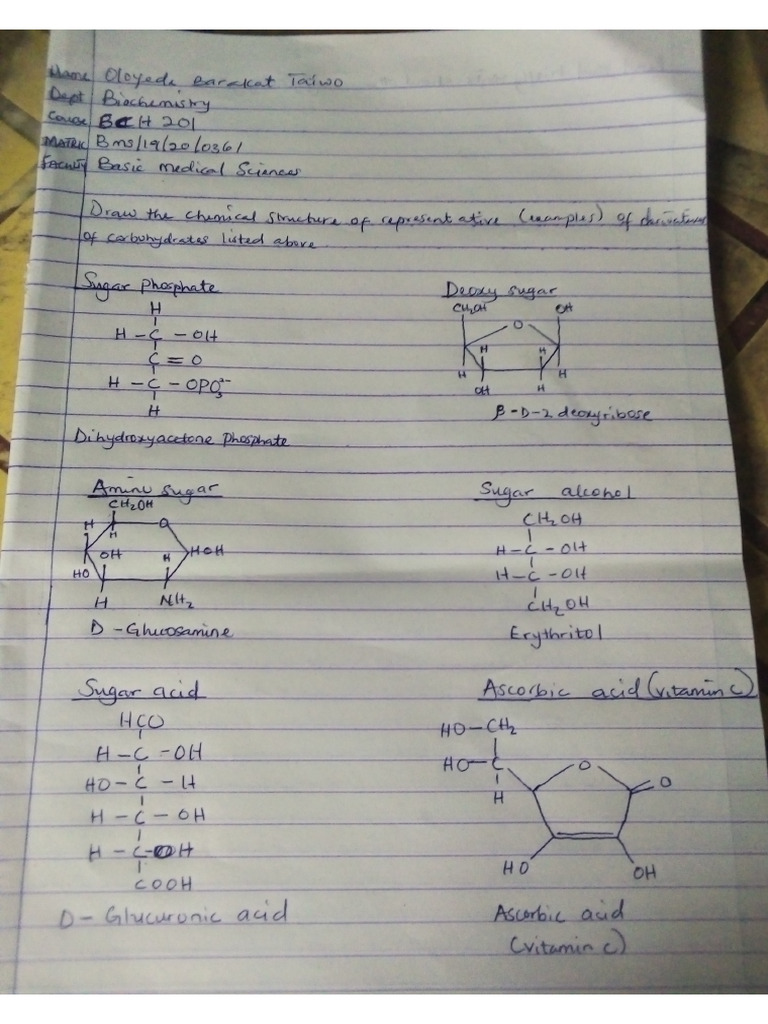 Name Oloyede Barakat Taiwo
Dept Biochemistry
Course BCH 201
MATRIC Bms/19/20/0361
Faculty Basic medical Sciences
Draw the chemical structure of representative (examples) of derivatives
of carbohydrates listed above
Sugar phosphate
H
H - C - OH
C = O
H - C - OPO₃²⁻
H
Dihydroxyacetone phosphate
Deoxy sugar
CH₂OH OH
O
H H
H H
OH H
β-D-2 deoxyribose
Amino sugar
CH₂OH
H O
H
OH H H OH
HO
H NH₂
D - Glucosamine
Sugar alcohol
CH₂OH
H - C - OH
H - C - OH
CH₂OH
Erythritol
Sugar acid
HCO
H - C - OH
HO - C - H
H - C - OH
H - C - OH
COOH
D - Glucuronic acid
Ascorbic acid (vitamin C)
HO - CH₂
HO - C O
H O
HO OH
Ascorbic acid
(vitamin C)